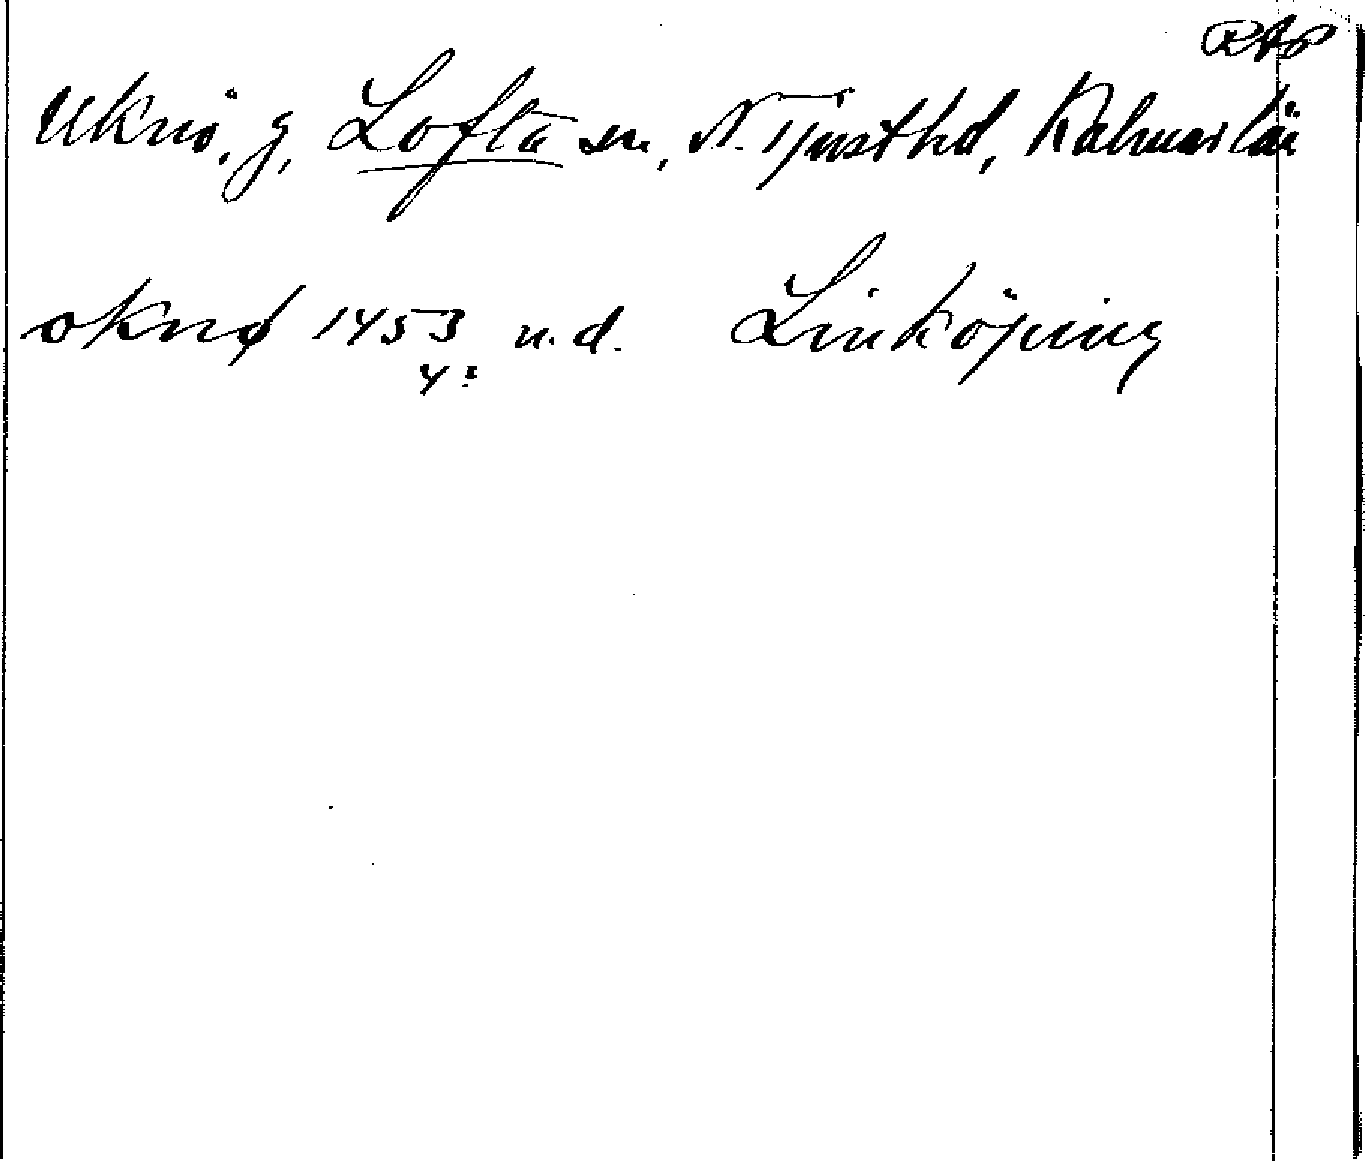 RAP
Uknö, g, Lofta sn, N. Tjust hd, Kalmar län
oknø 1453 u.d. Linköping